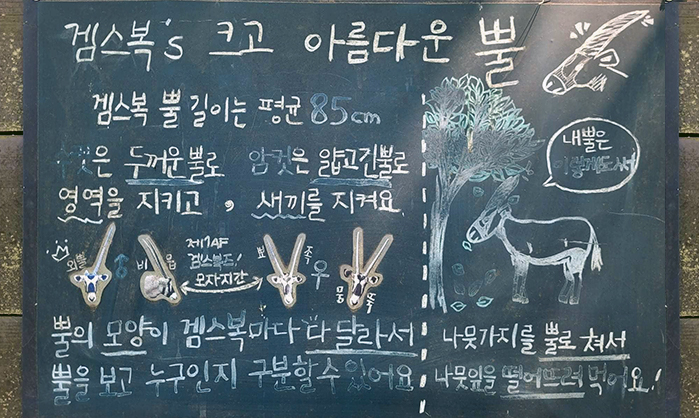 겜스복's 크고 아름다운 뿔
겜스복 뿔 길이는 평균 85cm
수컷은 두꺼운 뿔로 암컷은 얇고 긴 뿔로
영역을 지키고, 새끼를 지켜요.
외뿔
비읍
겜스복도!
모자지간
뾰족
우
뭉뚝
뿔의 모양이 겜스복마다 다 달라서
뿔을 보고 누구인지 구분할 수 있어요
내뿔은
이렇게도 써
나뭇가지를 뿔로 쳐서
나뭇잎을 떨어뜨려 먹어요!